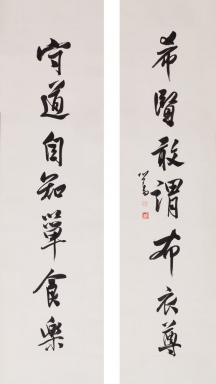 希賢敢謂布衣尊
守道自知簞食樂
心畬